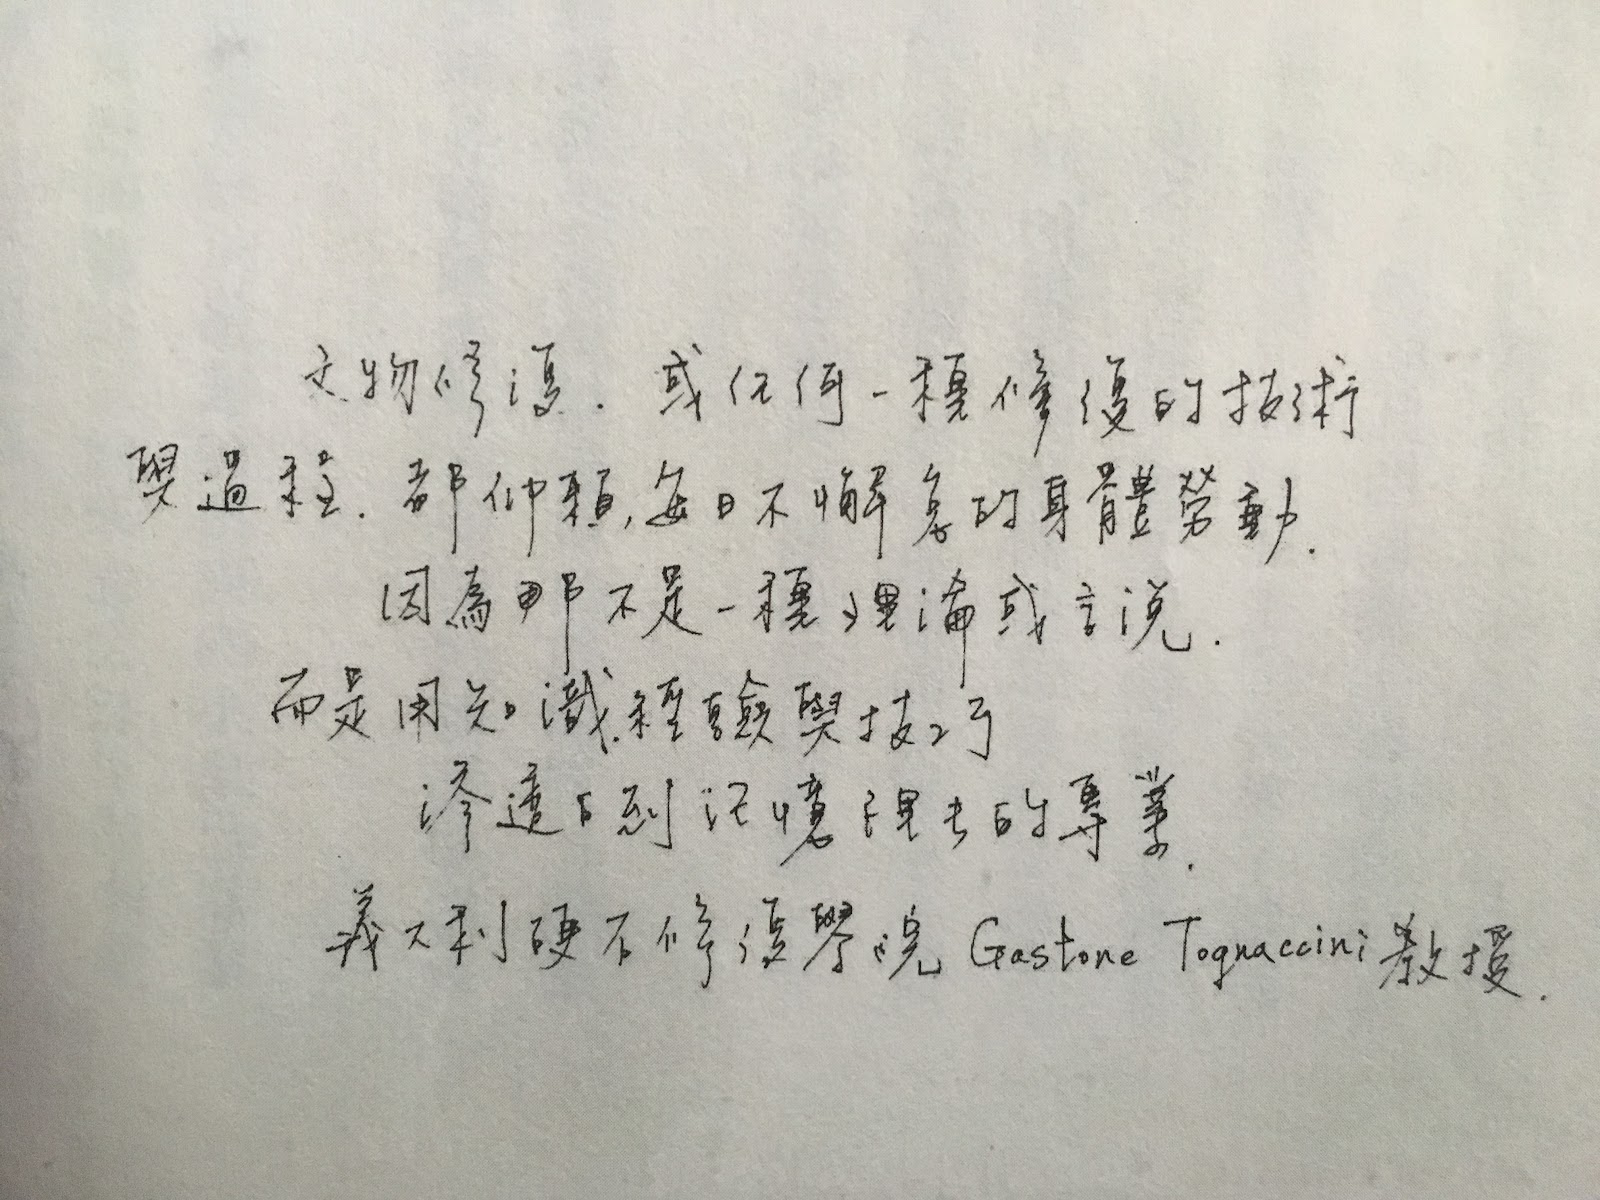 文物修復．或任何一種修復的技術
與過程．都仰賴，每日不懈怠的身體勞動．
因為那不是一種理論或言說．
而是用知識．經驗與技巧
滲透到記憶裡去的專業．
義大利硬石修復學院 Gastone Tognaccini 教授．